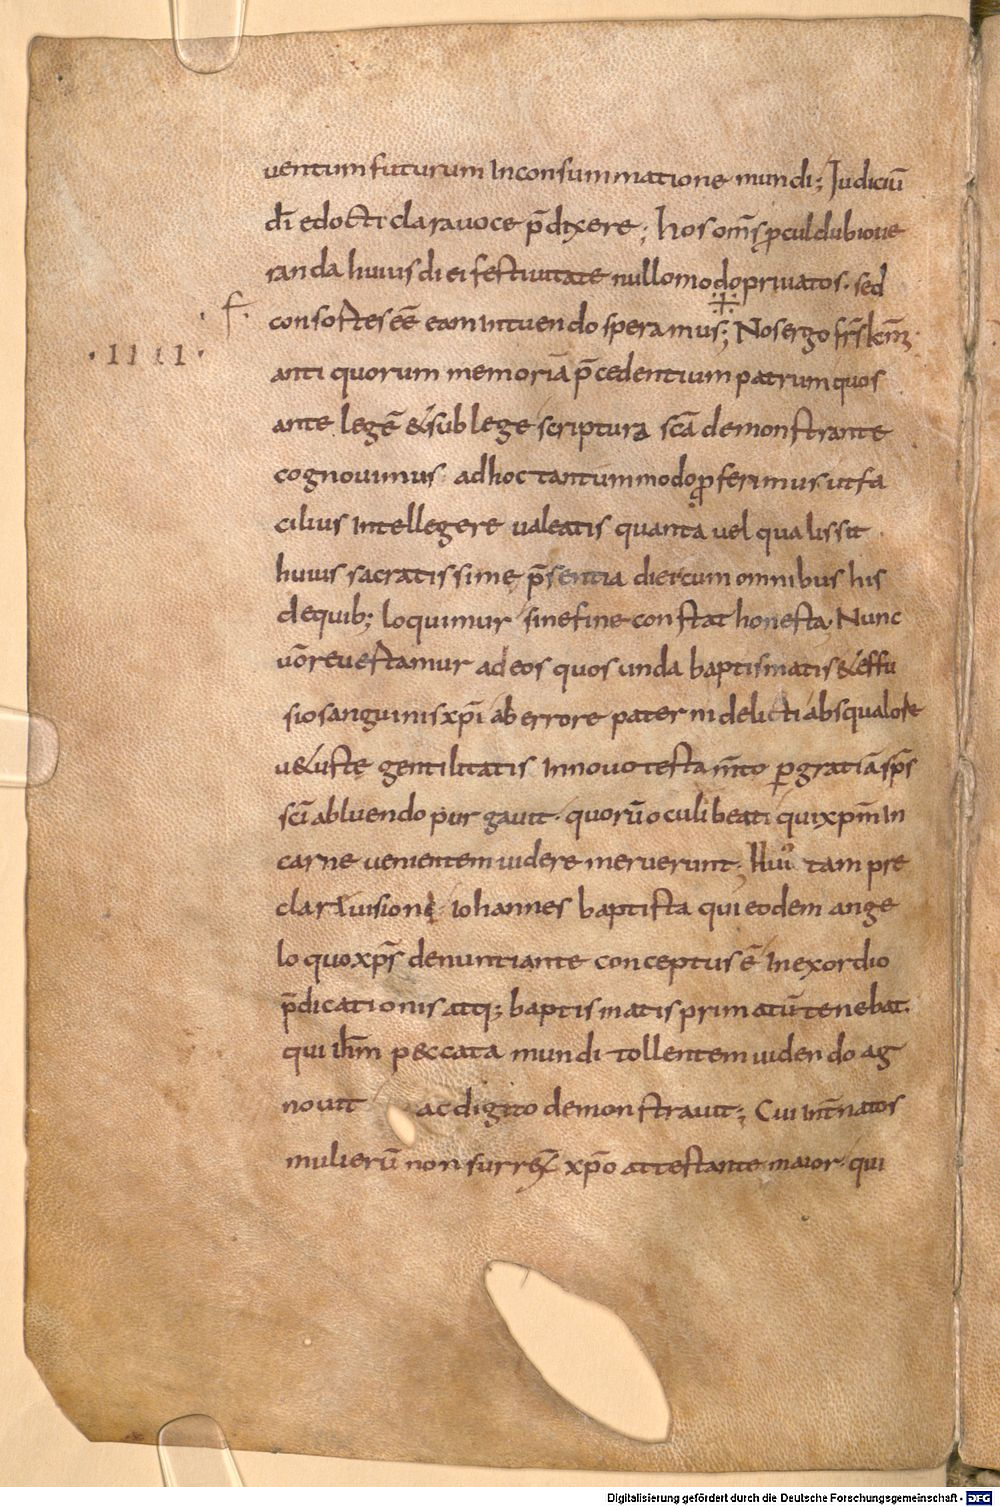 uentum futurum inconsummatione mundi; Iudiciū
dī edocti clara uoce p̄dixere; hos om̄s ꝓculdubio ue
randa huius diei festiuitate nullomodo priuatos· sed
·f· consortes eḗ eam intuendo speramus; Nos ergo fr̄s km̄
·IIII· anti quorum memoriā p̄cedentium patrum quos
ante legē & sub lege scriptura scā demonstrante
cognouimus· adhoc tantummodo ꝓferimus· ut fa
cilius intellegere ualeatis quanta uel qualis sit
huius sacratissime p̄sentia diei· cum omnibus his
dequib; loquimur sine fine constat honesta· Nunc
uō reuertamur ad eos quos unda baptismatis & effu
sio sanguinis xp̄i ab errore paterni delicti absqualore
u&uste gentilitatis innouo testam̄to ꝑ gratiā sp̄s
sc̄i abluendo purgauit· quorū oculi beati qui xpm̄ in
carne uenientem uidere meruerunt; Huiꝰ tam pre
clare uisionis iohannes baptista qui eodem ange
lo quo xp̄s denuntiante conceptus ē inexordio
p̄dicationis atq; baptismatis primatū tenebat·
qui ihm̄ peccata mundi tollentem uidendo ag
nouit ac digito demonstrauit; Cui int̄ natos
mulierū non surrex& xp̄o attestante maior· qui
Digitalisierung gefördert durch die Deutsche Forschungsgemeinschaft - DFG